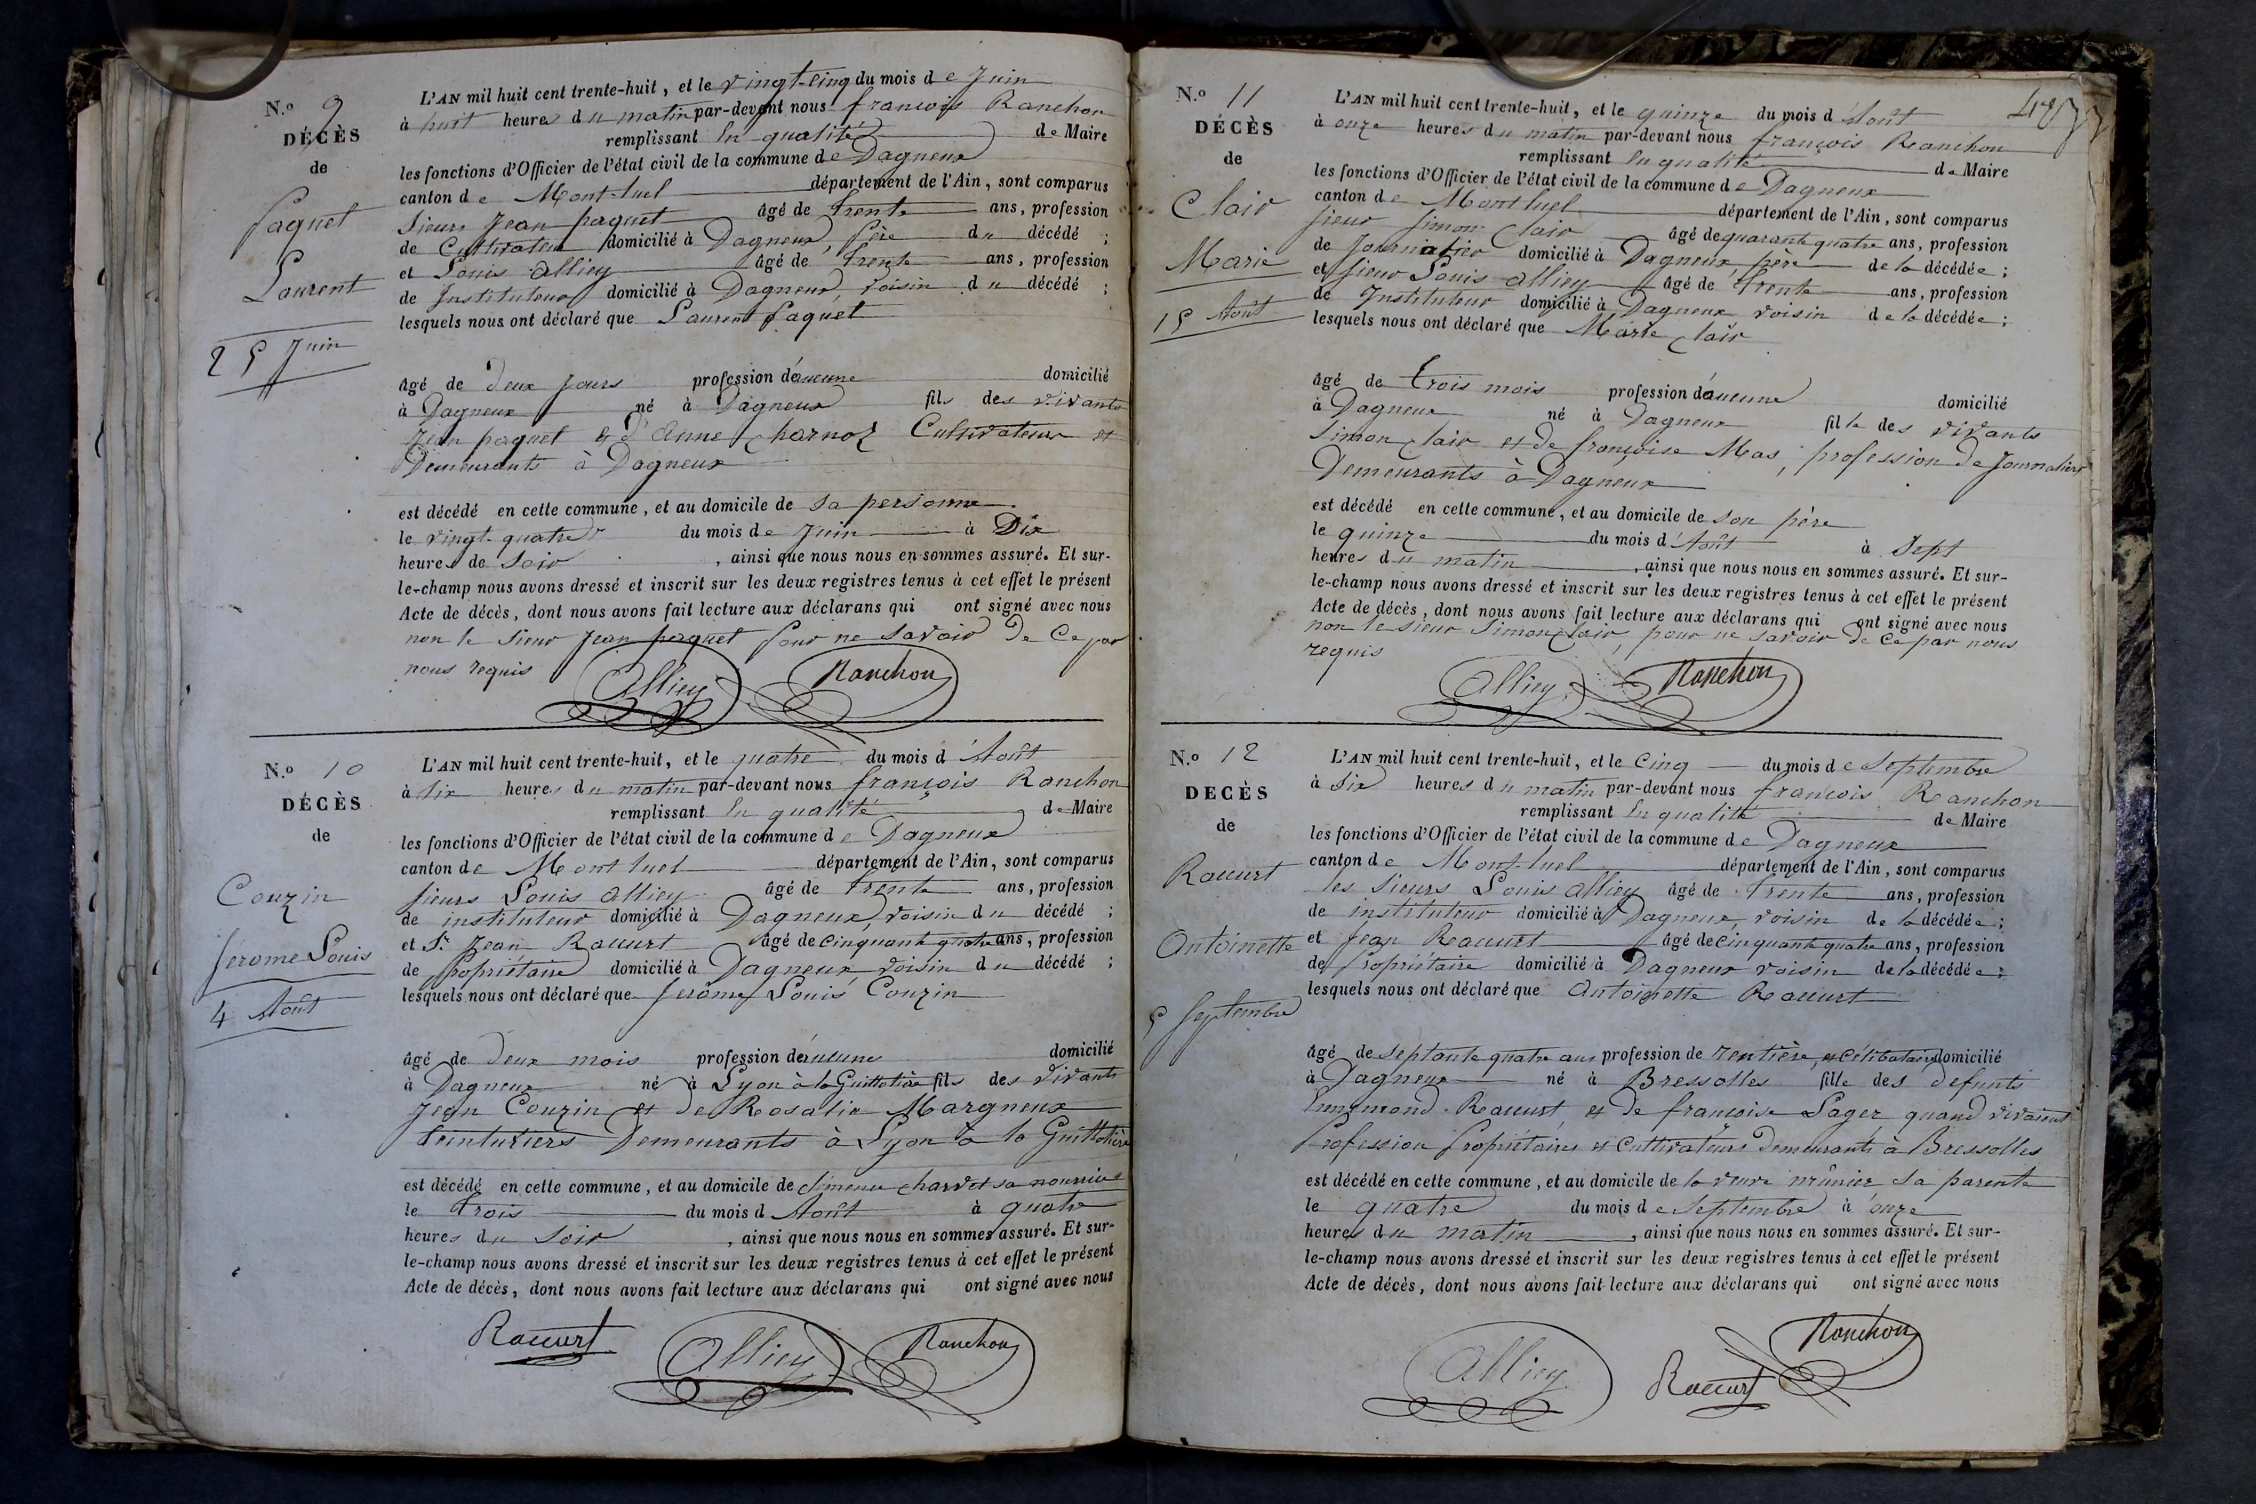 N.o 9
DÉCÈS
de
Paquet
Laurent
25 Juin
L'AN mil huit cent trente-huit, et le vingt-cinq du mois de Juin
à huit heures du matin par-devant nous françois Ranchon
remplissant En qualité de Maire
les fonctions d'Officier de l'état civil de la commune de Dagneux
canton de Mont-luel département de l'Ain, sont comparus
Sieurs Jean paquet âgé de trente ans, profession
de Cultivateur domicilié à Dagneux, père du décédé ;
et Louis Alliey âgé de trente ans, profession
de Instituteur domicilié à Dagneux, voisin du décédé ;
lesquels nous ont déclaré que Laurent Paquet
âgé de deux jours profession d'aucune domicilié
à Dagneux né à Dagneux fils des vivants
Jean paquet & d'anne charnoz Cultivateurs et
Demeurants à Dagneux
est décédé en cette commune, et au domicile de sa personne
le vingt-quatre du mois de Juin à Dix
heures de Soir , ainsi que nous nous en sommes assuré. Et sur-
le-champ nous avons dressé et inscrit sur les deux registres tenus à cet effet le présent
Acte de décès, dont nous avons fait lecture aux déclarans qui ont signé avec nous
non le Sieur Jean paquet pour ne savoir De Ce par
nous requis
Alliey Ranchon
N.o 10
DÉCÈS
de
Couzin
Jérome Louis
4 Août
L'AN mil huit cent trente-huit, et le quatre du mois d'Août
à six heures du matin par-devant nous françois Ranchon
remplissant En qualité de Maire
les fonctions d'Officier de l'état civil de la commune de Dagneux
canton de Mont luel département de l'Ain, sont comparus
sieurs Louis Alliey âgé de trente ans, profession
de instituteur domicilié à Dagneux, voisin du décédé ;
et Sr. Jean Raccurt âgé de cinquante quatre ans, profession
de Propriétaire domicilié à Dagneux, voisin du décédé ;
lesquels nous ont déclaré que Jérôme Louis Couzin
âgé de deux mois profession d'aucune domicilié
à Dagneux né à Lyon à la Guillotière fils des vivants
Jean Couzin et de Rosalie Margneux
teinturiers Demeurants à Lyon à la Guillotière
est décédé en cette commune, et au domicile de charvet sa nourrice
le trois du mois d'Août à quatre
heures du Soir , ainsi que nous nous en sommes assuré. Et sur-
le-champ nous avons dressé et inscrit sur les deux registres tenus à cet effet le présent
Acte de décès, dont nous avons fait lecture aux déclarans qui ont signé avec nous
Raccurt Alliey Ranchon
N.o 11
DÉCÈS
de
Clair
Marie
15 Août
L'AN mil huit cent trente-huit, et le quinze du mois d'Août
à onze heures du matin par-devant nous françois Ranchon
remplissant En qualité de Maire
les fonctions d'Officier de l'état civil de la commune de Dagneux
canton de Montluel département de l'Ain, sont comparus
sieur simon Clair âgé de quarante quatre ans, profession
de Journalier domicilié à Dagneux, père de la décédée ;
et sieur Louis Alliey âgé de trente ans, profession
de Instituteur domicilié à Dagneux voisin de la décédée ;
lesquels nous ont déclaré que Marie Clair
âgé de trois mois profession d'aucune domicilié
à Dagneux né à Dagneux fille des vivants
Simon Clair et de françoise Mas, profession de Journaliers
Demeurants à Dagneux
est décédé en cette commune, et au domicile de son père
le quinze du mois d'Août à Sept
heures du matin , ainsi que nous nous en sommes assuré. Et sur-
le-champ nous avons dressé et inscrit sur les deux registres tenus à cet effet le présent
Acte de décès, dont nous avons fait lecture aux déclarans qui ont signé avec nous
non le sieur Simon Clair, pour ne savoir de Ce par nous
requis
Alliey Ranchon
N.o 12
DECÈS
de
Raccurt
Antoinette
5 Septembre
L'AN mil huit cent trente-huit, et le Cinq du mois de Septembre
à six heures du matin par-devant nous françois Ranchon
remplissant En qualité de Maire
les fonctions d'Officier de l'état civil de la commune de Dagneux
canton de Mont-luel département de l'Ain, sont comparus
les Sieurs Louis Alliey âgé de trente ans, profession
de instituteur domicilié à Dagneux, voisin de la décédée ;
et Jean Raccurt âgé de cinquante quatre ans, profession
de Propriétaire domicilié à Dagneux voisin de la décédée ;
lesquels nous ont déclaré que Antoinette Raccurt
âgé de septante quatre ans profession de rentière, et Célibataire domicilié
à Dagneux né à Bressolles fille des defunts
Ennemond Raccurt et de françoise Lager quand vivaient
Profession Propriétaires et Cultivateurs Demeurants à Bressolles
est décédé en cette commune, et au domicile de la veuve mûnier sa parente
le quatre du mois de Septembre à onze
heures du matin , ainsi que nous nous en sommes assuré. Et sur-
le-champ nous avons dressé et inscrit sur les deux registres tenus à cet effet le présent
Acte de décès, dont nous avons fait lecture aux déclarans qui ont signé avec nous
Alliey Raccurt Ranchon